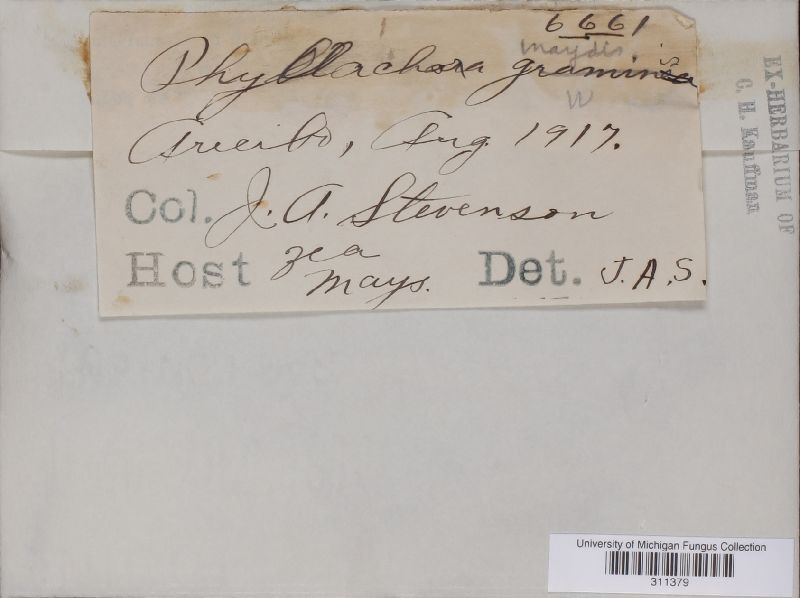 6661
maydis
Phyllachora graminis
W
Arecibo, Aug. 1917.
Col. J. A. Stevenson
Host zea
Mays.
Det. J.A.S.
EX-HERBARIUM OF
C. H. Kauffman
University of Michigan Fungus Collection
311379